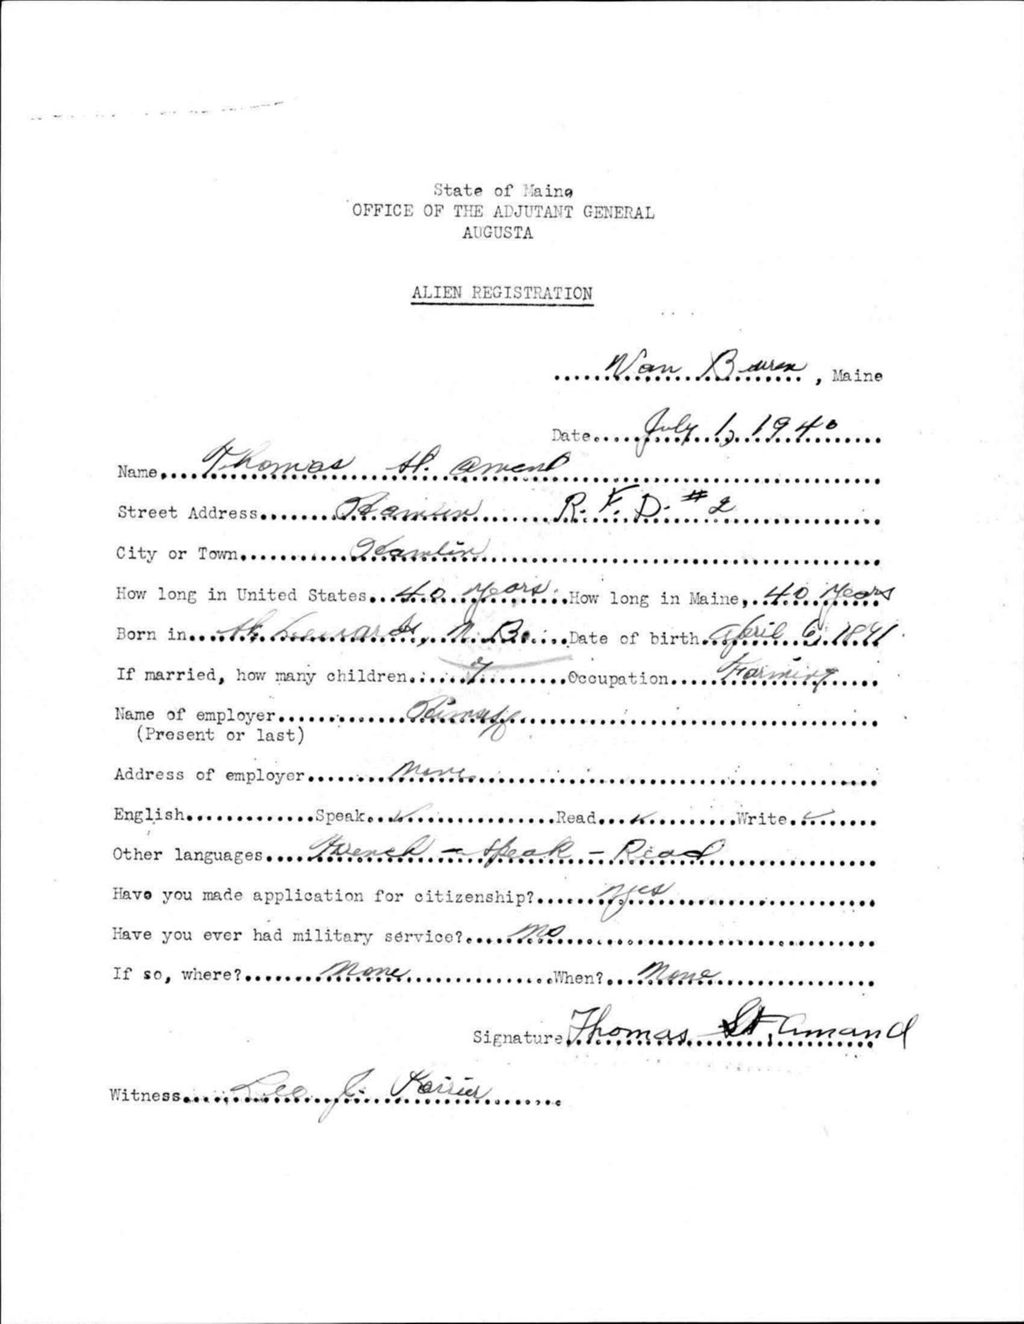 State of Maine
OFFICE OF THE ADJUTANT GENERAL
AUGUSTA
ALIEN REGISTRATION
Van Buren, Maine
Date July 1, 1940
Name Thomas St. Amend
Street Address Hamlin R.F.D. #2
City or Town Hamlin
How long in United States 40 years How long in Maine, 40 years
Born in St. Leonards, N.B. Date of birth April 6, 1891
If married, how many children 7 Occupation Farming
Name of employer Himself
(Present or last)
Address of employer None
English Speak ✓ Read ✓ Write ✓
Other languages French - Speak - Read
Have you made application for citizenship? Yes
Have you ever had military service? No
If so, where? None When? None
Signature Thomas St. Amand
Witness Leo J.